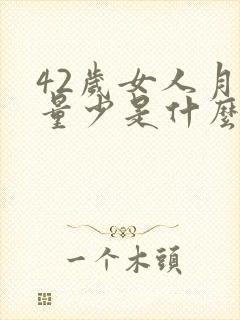 42歲女人月
量少是什麼
一个木頭